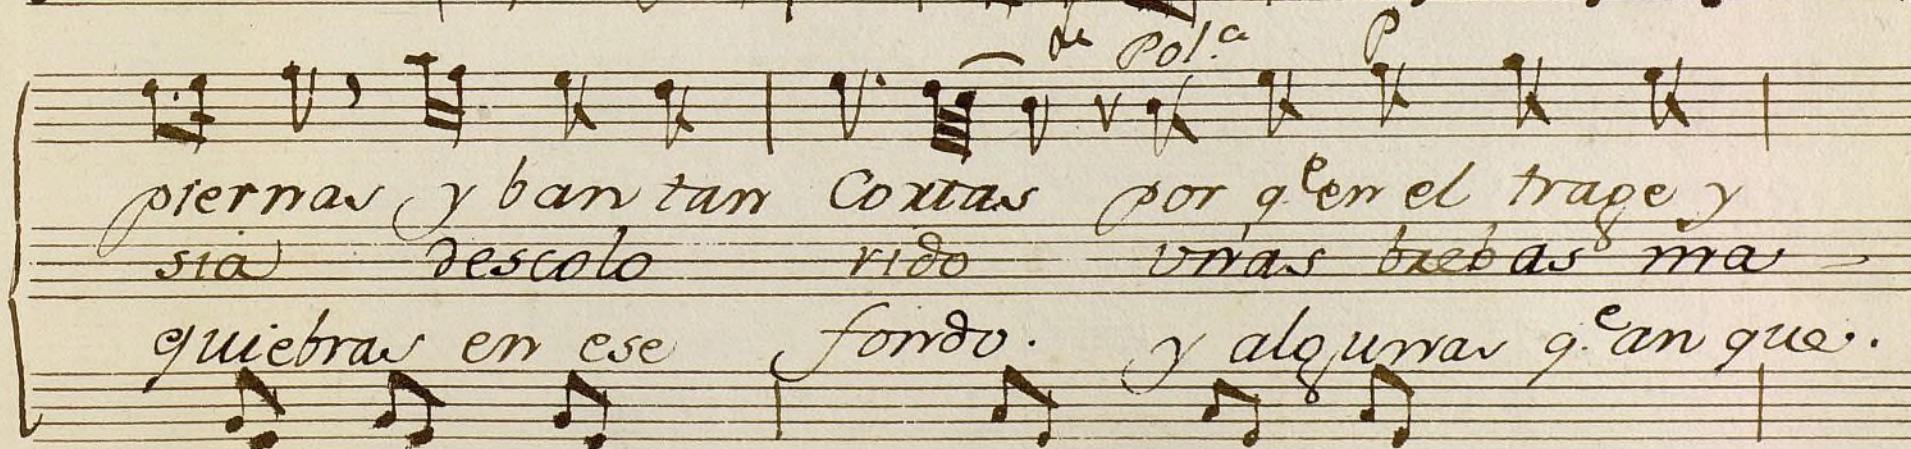 de Pol.ᵃ P
piernas y ban tan Cortas por q.ᵉ en el trage y
sia descolo rido unas brebas ma
quiebras en ese fondo. y algunas q.ᵉ an que.